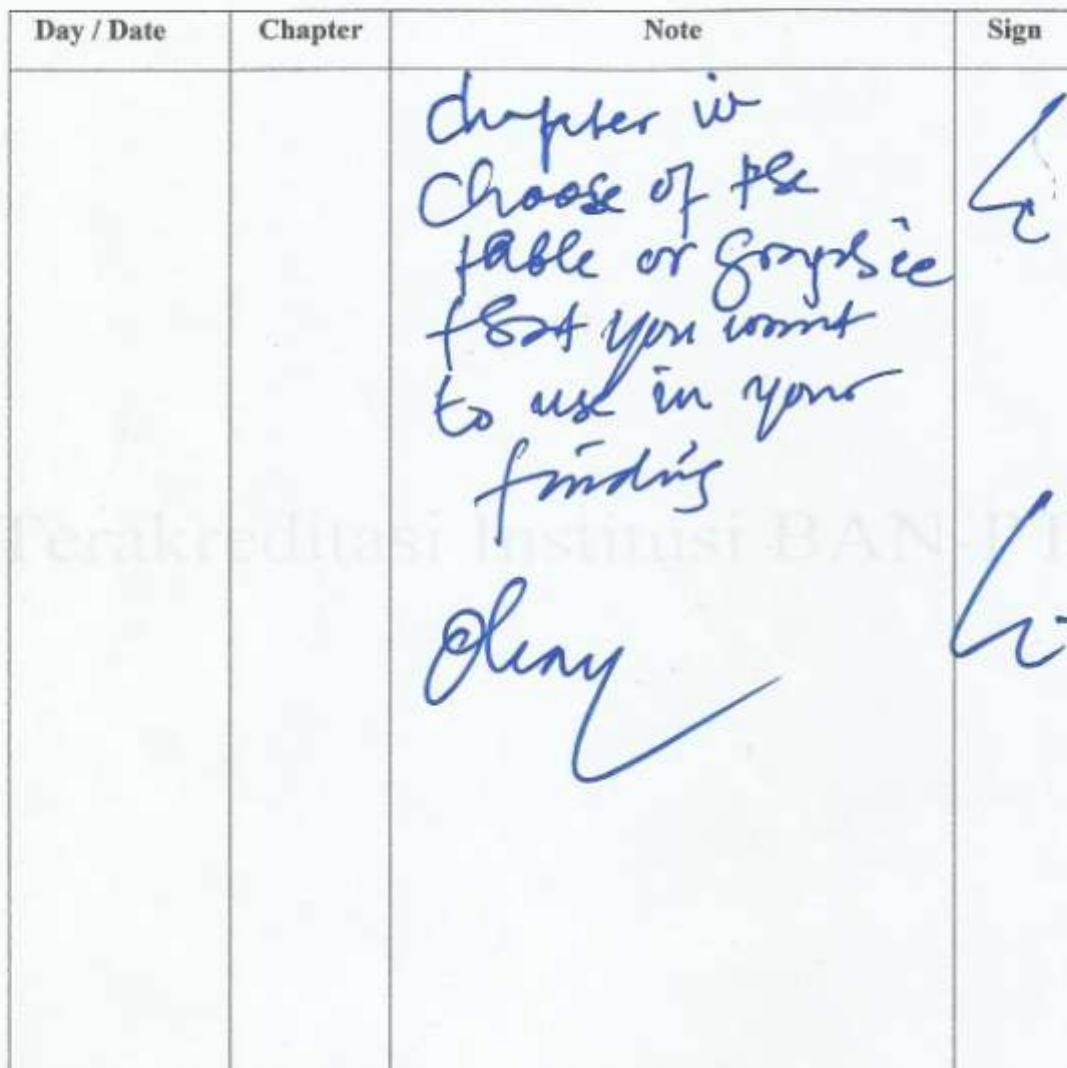 Day / Date Chapter Note Sign
Chapter iv
Choose of the
table or graphic
that you want
to use in your
finding
Okay
Terakreditasi Institusi BAN-PT